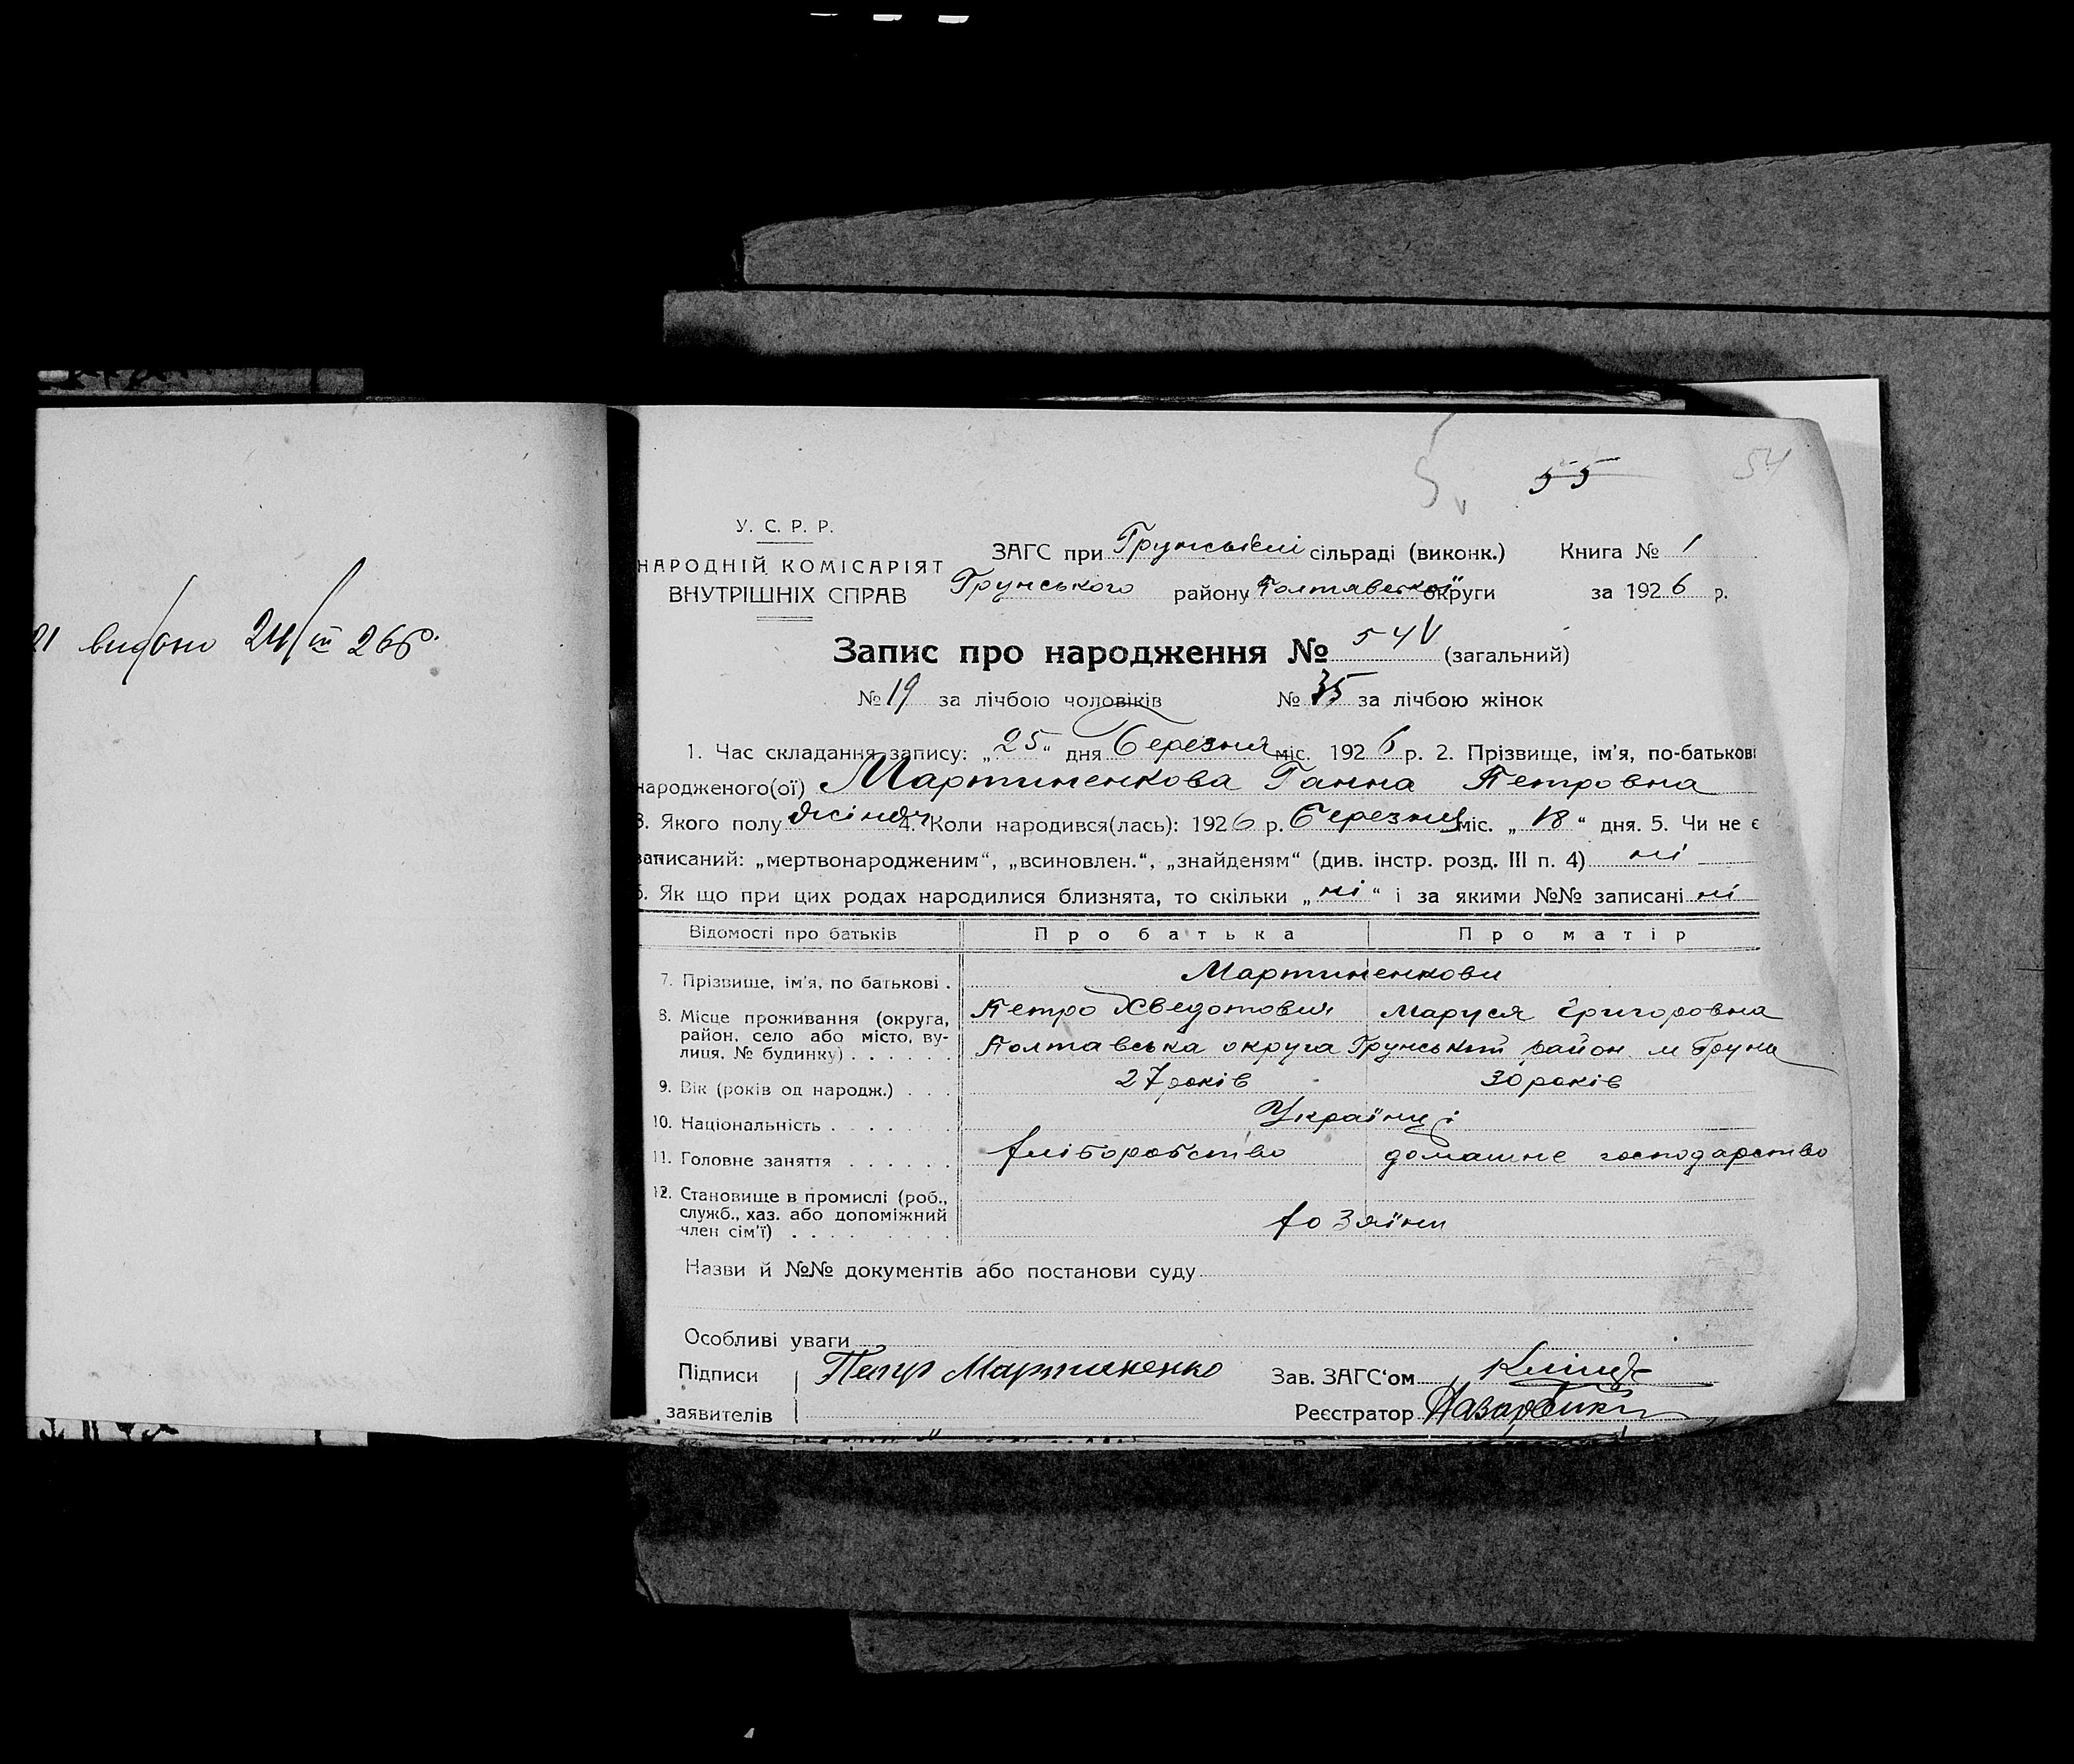 54
55
У. С. Р. Р.
НАРОДНІЙ КОМІСАРІЯТ
ВНУТРІШНІХ СПРАВ
ЗАГС при Грунській сільраді (виконк.) Книга № 1
Грунського району Полтавської округи за 1926 р.
видано 24/III 26 р.
Запис про народження № 54 (загальний)
№ 19 за лічбою чоловіків № 35 за лічбою жінок
1. Час складання запису: „25“ дня Березня міс. 1926 р. 2. Прізвище, ім'я, по-батькові
народженого(ої) Мартиненкова Ганна Петровна
3. Якого полу жіноч 4. Коли народився(лась): 1926 р. Березня міс. „18“ дня. 5. Чи не є
записаний: „мертвонародженим“, „всиновлен.“, „знайденям“ (див. інстр. розд. III п. 4) ні
6. Як що при цих родах народилися близнята, то скільки „ні“ і за якими №№ записані ні
Відомості про батьків Про батька Про матір
7. Прізвище, ім'я, по батькові . Мартиненкови
Петро Хведотович Маруся Григоровна
8. Місце проживання (округа,
район, село або місто, ву-
лиця, № будинку) . . . . . . Полтавська округа Грунський район м Грунь
9. Вік (років од народж.) . . . 27 років 30 років
10. Національність . . . . . . . Українці
11. Головне заняття . . . . . . хліборобство домашнє господарство
12. Становище в промислі (роб.,
служб., хаз. або допоміжний
член сім'ї) . . . . . . . . . хозяїни
Назви й №№ документів або постанови суду
Особливі уваги
Підписи Петр Мартиненко Зав. ЗАГС'ом
заявителів Реєстратор